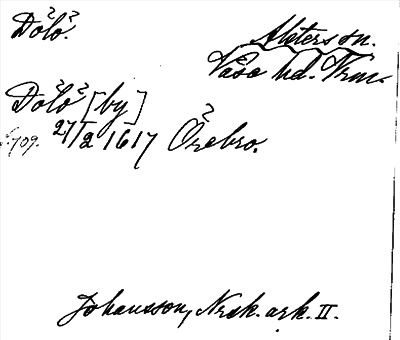 Dölö.
Alsters sn.
Väse hd. Vrm.
Dölö [by]
s. 709. 27/2 1617 Örebro.
Johansson, Norsk. ark. II.